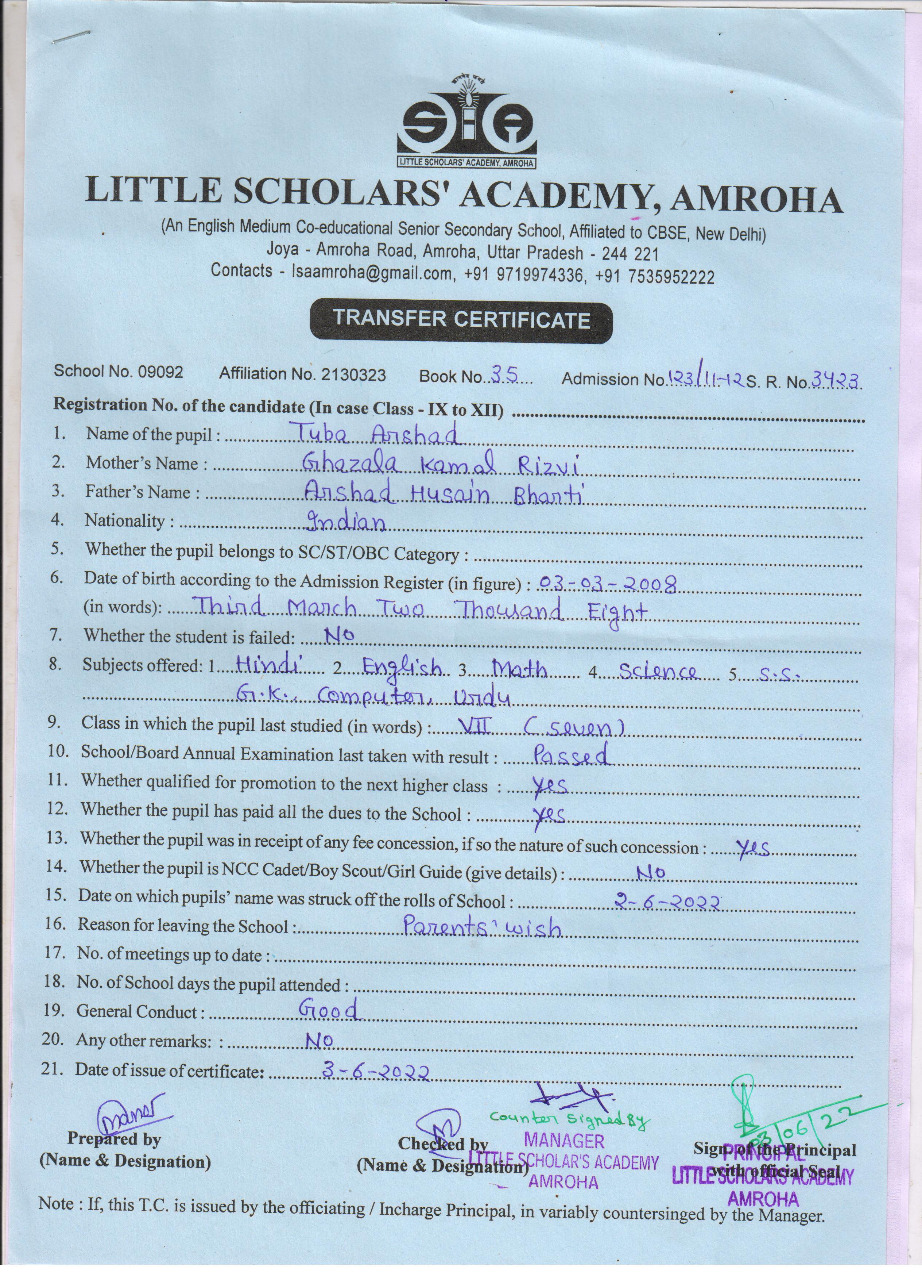 SLA
LITTLE SCHOLARS' ACADEMY, AMROHA
LITTLE SCHOLARS' ACADEMY, AMROHA
(An English Medium Co-educational Senior Secondary School, Affiliated to CBSE, New Delhi)
Joya - Amroha Road, Amroha, Uttar Pradesh - 244 221
Contacts - lsaamroha@gmail.com, +91 9719974336, +91 7535952222
TRANSFER CERTIFICATE
School No. 09092 Affiliation No. 2130323 Book No. 35 Admission No. 123/11-12 S. R. No. 3423
Registration No. of the candidate (In case Class - IX to XII)
1. Name of the pupil : Tuba Arshad
2. Mother's Name : Ghazala Kamal Rizvi
3. Father's Name : Arshad Husain Bharti
4. Nationality : Indian
5. Whether the pupil belongs to SC/ST/OBC Category :
6. Date of birth according to the Admission Register (in figure) : 03-03-2008
(in words): Third March Two Thousand Eight
7. Whether the student is failed: No
8. Subjects offered: 1 Hindi 2. English 3. Math 4. Science 5. S.S.
G.K., Computer, Urdu
9. Class in which the pupil last studied (in words) : VII (seven)
10. School/Board Annual Examination last taken with result : Passed
11. Whether qualified for promotion to the next higher class : yes
12. Whether the pupil has paid all the dues to the School : yes
13. Whether the pupil was in receipt of any fee concession, if so the nature of such concession : yes
14. Whether the pupil is NCC Cadet/Boy Scout/Girl Guide (give details) : No
15. Date on which pupils' name was struck off the rolls of School : 2-6-2022
16. Reason for leaving the School : Parents' wish
17. No. of meetings up to date :
18. No. of School days the pupil attended :
19. General Conduct : Good
20. Any other remarks: : No
21. Date of issue of certificate: 3-6-2022
Counter Signed By
03/06/22
Prepared by Checked by MANAGER Sign of the Principal PRINCIPAL
(Name & Designation) (Name & Designation) LITTLE SCHOLAR'S ACADEMY with official Seal LITTLE SCHOLARS ACADEMY
AMROHA AMROHA
Note : If, this T.C. is issued by the officiating / Incharge Principal, in variably countersinged by the Manager.